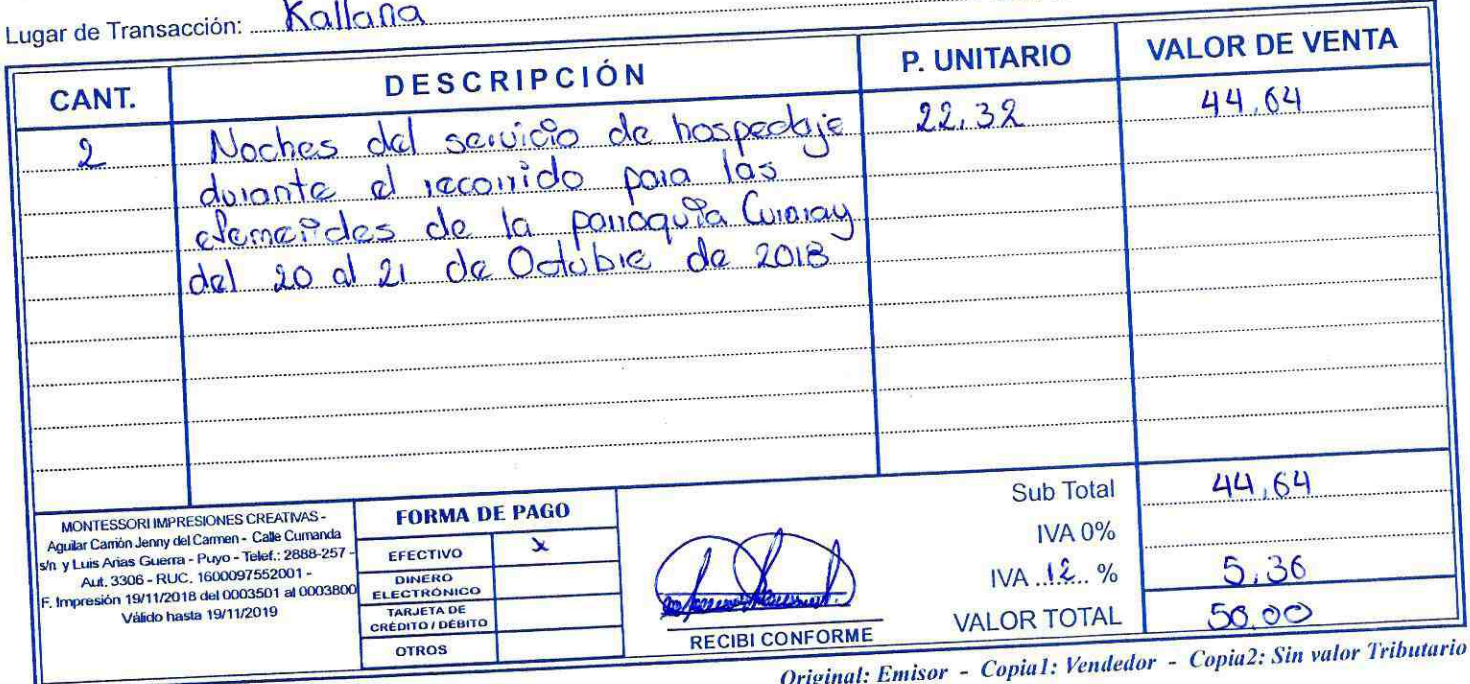 Lugar de Transacción: Kallana
CANT. DESCRIPCIÓN P. UNITARIO VALOR DE VENTA
2 Noches del servicio de hospedaje 22,32 44,64
durante el recorrido para las
efemerides de la parroquia Curaray
del 20 al 21 de Octubre de 2018
MONTESSORI IMPRESIONES CREATIVAS -
Aguilar Carrión Jenny del Carmen - Calle Cumanda
s/n y Luis Arias Guerra - Puyo - Telef.: 2888-257 -
Aut. 3306 - RUC. 1600097552001 -
F. Impresión 19/11/2018 del 0003501 al 0003800
Válido hasta 19/11/2019
FORMA DE PAGO
EFECTIVO x
DINERO
ELECTRÓNICO
TARJETA DE
CRÉDITO / DÉBITO
OTROS
RECIBI CONFORME
Sub Total 44,64
IVA 0%
IVA 12 % 5,36
VALOR TOTAL 50,00
Original: Emisor - Copia1: Vendedor - Copia2: Sin valor Tributario